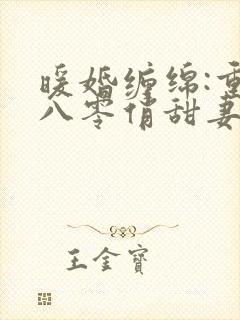 暖婚缠绵:重
八零俏甜妻
王金宝